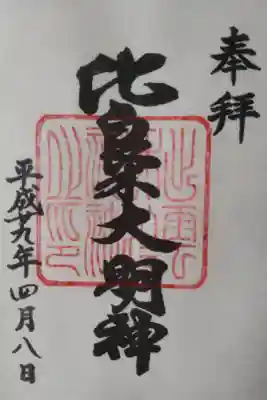 奉拝
比 大明神
平成十九年四月八日